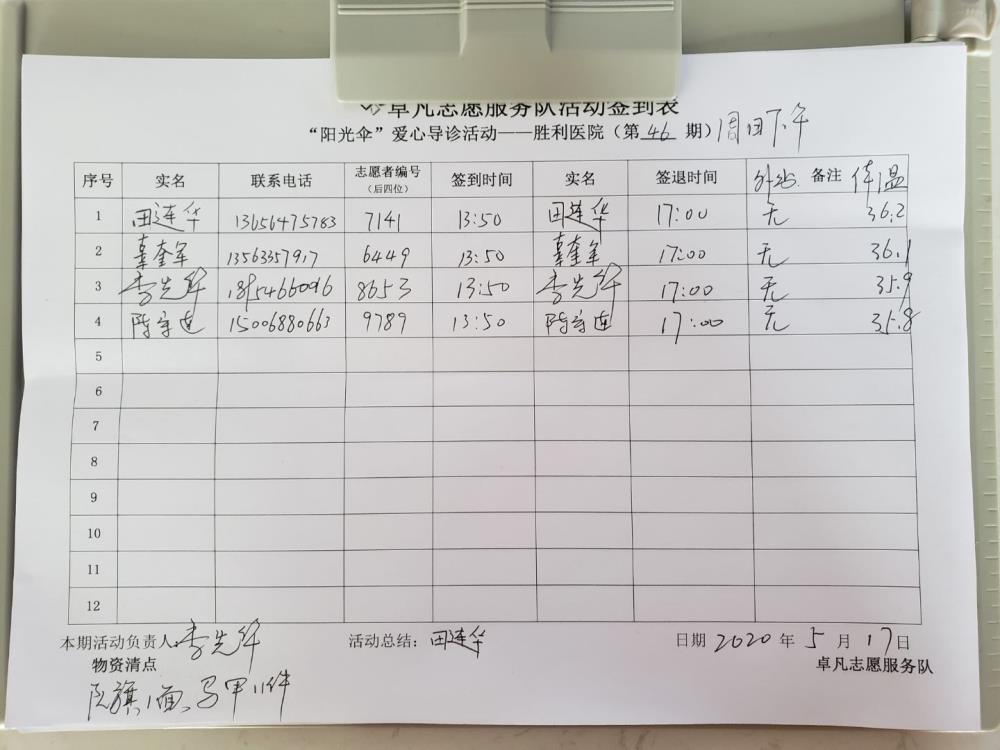 卓凡志愿服务队活动签到表
“阳光伞”爱心导诊活动——胜利医院（第 46 期）周日下午
序号 实名 联系电话 志愿者编号（后四位） 签到时间 实名 签退时间 外出 备注 体温
1 田连华 13656475783 7141 13:50 田连华 17:00 无 36.2
2 辜奎军 13563357917 6449 13:50 辜奎军 17:00 无 36.1
3 李先华 18954466096 8653 13:50 李先华 17:00 无 35.9
4 陈宝莲 15006880663 9789 13:50 陈宝莲 17:00 无 35.8
5
6
7
8
9
10
11
12
本期活动负责人 李先华 活动总结：田连华 日期 2020 年 5 月 17 日
物资清点 卓凡志愿服务队
队旗1面、马甲11件